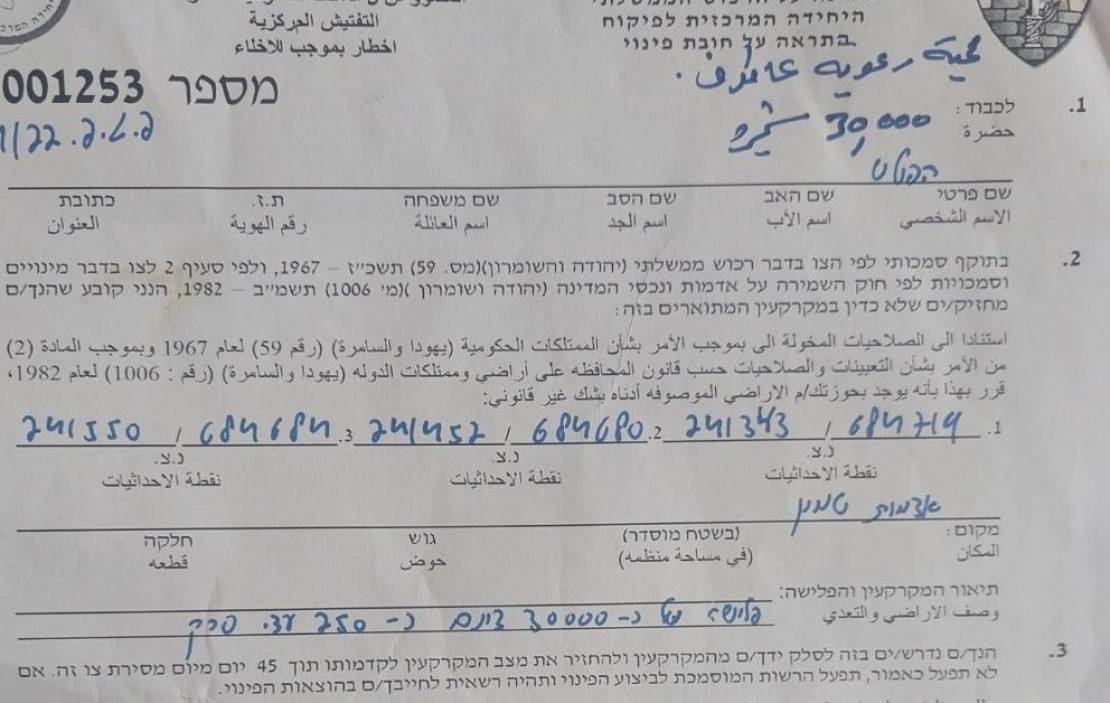 היחידה המרכזית לפיקוח
התפتיש المركزية
התראה על חובת פינוי
اخطار بموجب للاخلاء
מספר 001253
1. לכבוד:
حضرة
30,000
הפולש
שם פרטי שם האב שם הסב שם משפחה ת.ז. כתובת
الاسم الشخصي اسم الأب اسم الجد اسم العائلة رقم الهوية العنوان
2. בתוקף סמכותי לפי הצו בדבר רכוש ממשלתי (יהודה והשומרון)(מס. 59) תשכ״ז – 1967, ולפי סעיף 2 לצו בדבר מינויים
וסמכויות לפי חוק השמירה על אדמות ונכסי המדינה (יהודה ושומרון )(מ׳ 1006) תשמ״ב – 1982, הנני קובע שהנך/ם
מחזיק/ים שלא כדין במקרקעין המתוארים בזה:
استنادا الى الصلاحيات المخولة الى بموجب الأمر بشأن الممتلكات الحكومية (يهودا والسامرة) (رقم 59) لعام 1967 وبموجب المادة (2)
من الأمر بشأن التعيينات والصلاحيات حسب قانون المحافظه على أراضي وممتلكات الدوله (يهودا والسامرة) (رقم : 1006) لعام 1982،
قرر بهذا بأنه يوجد بحوزتك/م الاراضي الموصوفه أدناه بشك غير قانوني:
1. 684714 / 241343 2. 684680 / 241452 3. 684684 / 241550
נ.צ. נ.צ. נ.צ.
نقطة الاحداثيات نقطة الاحداثيات نقطة الاحداثيات
אדמות טמון
מקום: (בשטח מוסדר) גוש חלקה
المكان (في مساحة منظمه) حوض قطعه
תיאור המקרקעין והפלישה:
وصف الاراضي والتعدي
פלישה של כ- 30000 דונם כ- 250 עצי סרק
3. הנך/ם נדרש/ים בזה לסלק ידך/ם מהמקרקעין ולהחזיר את מצב המקרקעין לקדמותו תוך 45 יום מיום מסירת צו זה. אם
לא תפעל כאמור, תפעל הרשות המוסמכת לביצוע הפינוי ותהיה רשאית לחייבך/ם בהוצאות הפינוי.